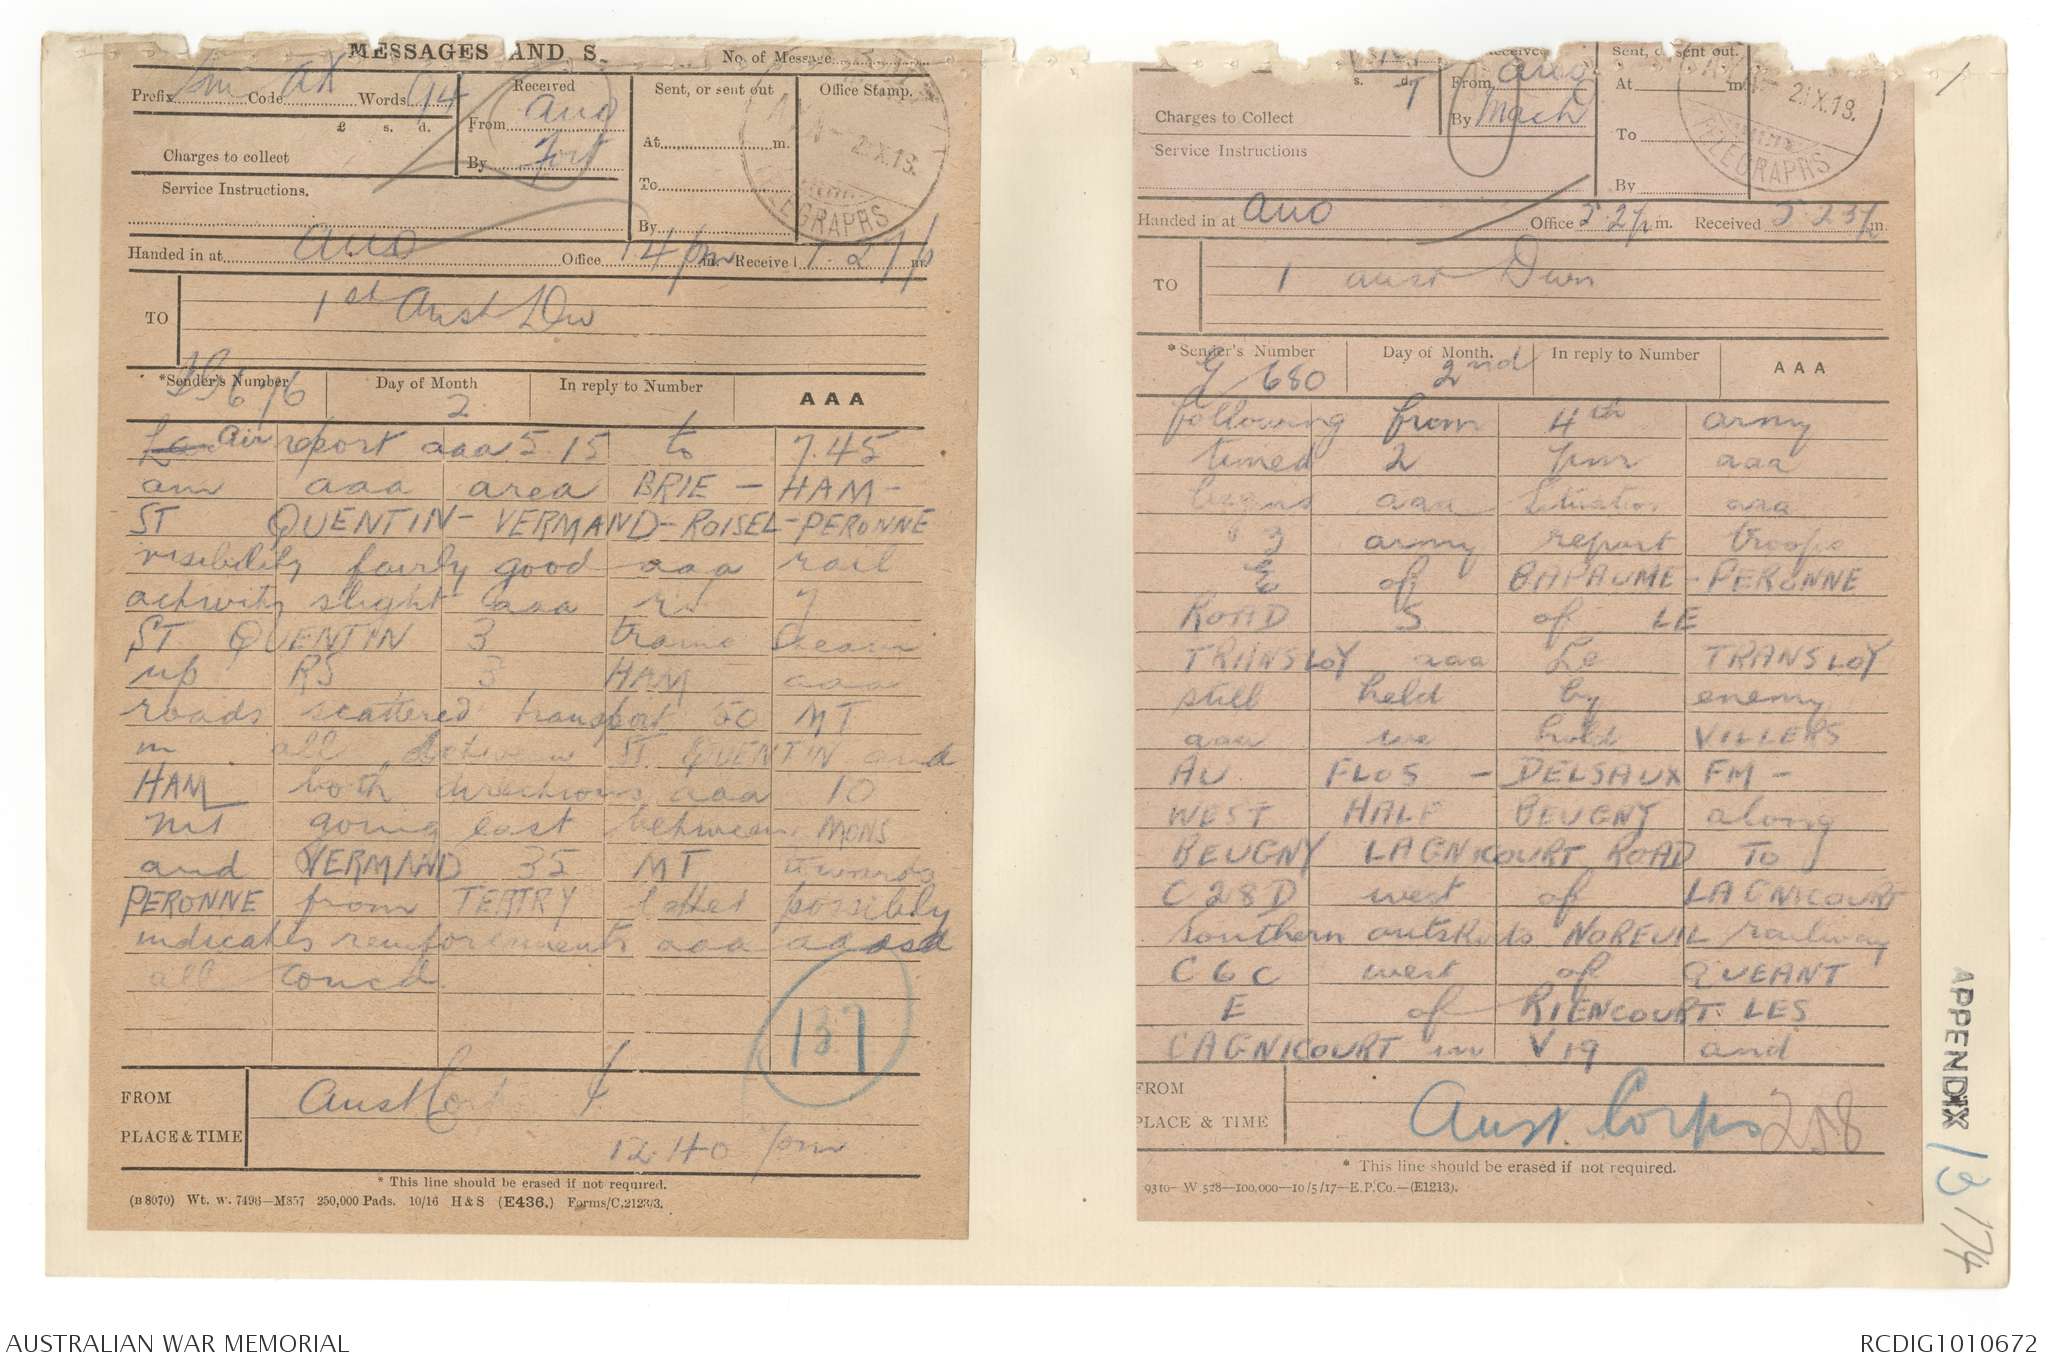 MESSAGES AND S
No. of Message
Prefix Sm Code AX Words 94
Received
From auo
By Fort
Sent, or sent out
At m.
To
By
Office Stamp.
TELEGRAPHS
£ s. d.
Charges to collect
Service Instructions.
Handed in at auo Office 1.4 pm m. Received 1.27 p m.
TO
1st Aust Div
*Sender's Number
Day of Month 2
In reply to Number
AAA
Air report aaa 5.15 to 7.45
am aaa area BRIE - HAM -
ST QUENTIN - VERMAND - ROISEL - PERONNE
visibility fairly good aaa rail
activity slight aaa
ST. QUENTIN 3 trains steam
up RS 3 HAM aaa
roads scattered transport 50 MT
in all between ST. QUENTIN and
HAM both directions aaa 10
mt going east between MONS
and VERMAND 35 MT towards
PERONNE from TERTRY latter possibly
indicates reinforcements aaa
all concd
137
FROM
PLACE & TIME
Aust Corps
12.40 pm
* This line should be erased if not required.
(B 8070) Wt. w. 7496—M857 250,000 Pads. 10/16 H & S (E436.) Forms/C.2123/3.
s. d.
Charges to Collect
Service Instructions
Received
From auo
By Mach
Sent, or sent out.
At m.
To
By
TELEGRAPHS
1
Handed in at auo Office 5.2 p m. Received 5.23 p m.
TO
1 aust Divn
*Sender's Number G 680
Day of Month. 2nd
In reply to Number
AAA
following from 4th army
timed 2 pm aaa
begins aaa Situation aaa
3 army report troops
E of BAPAUME - PERONNE
ROAD S of LE
TRANSLOY aaa Le TRANSLOY
still held by enemy
aaa we hold VILLERS
AU FLOS - DELSAUX FM -
WEST HALF BEUGNY along
BEUGNY LAGNICOURT ROAD TO
C28D west of LAGNICOURT
Southern outskirts NOREUIL railway
C6C west of QUEANT
E of RIENCOURT LES
CAGNICOURT in V19 and
FROM
PLACE & TIME
Aust. Corps 258
* This line should be erased if not required.
9310—W 528—100,000—10/5/17—E.P.Co.—(E1213).
APPENDIX 13
174
AUSTRALIAN WAR MEMORIAL
RCDIG1010672